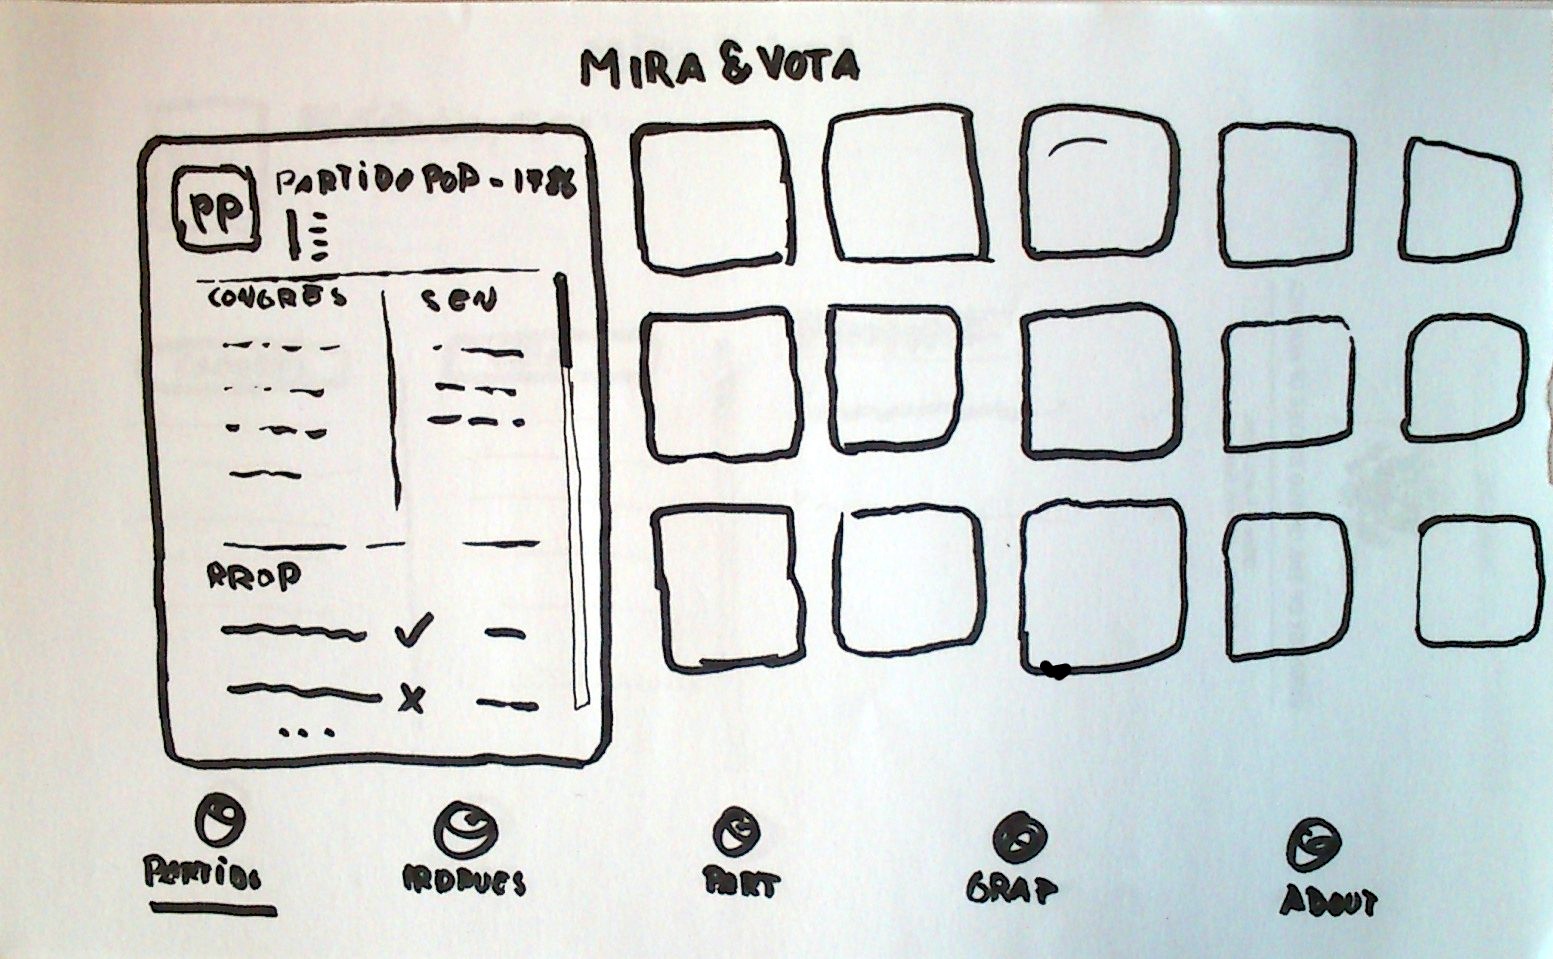 MIRA & VOTA
PP
PARTIDO POP - 1786
CONGRES
SEN
PROP
PARTIDO
PART
GRAP
ABOUT